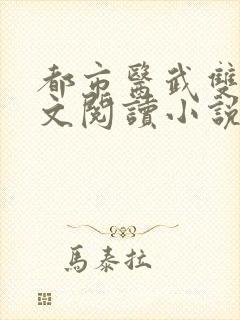 都市醫武雙
文閱讀小説
馬泰拉